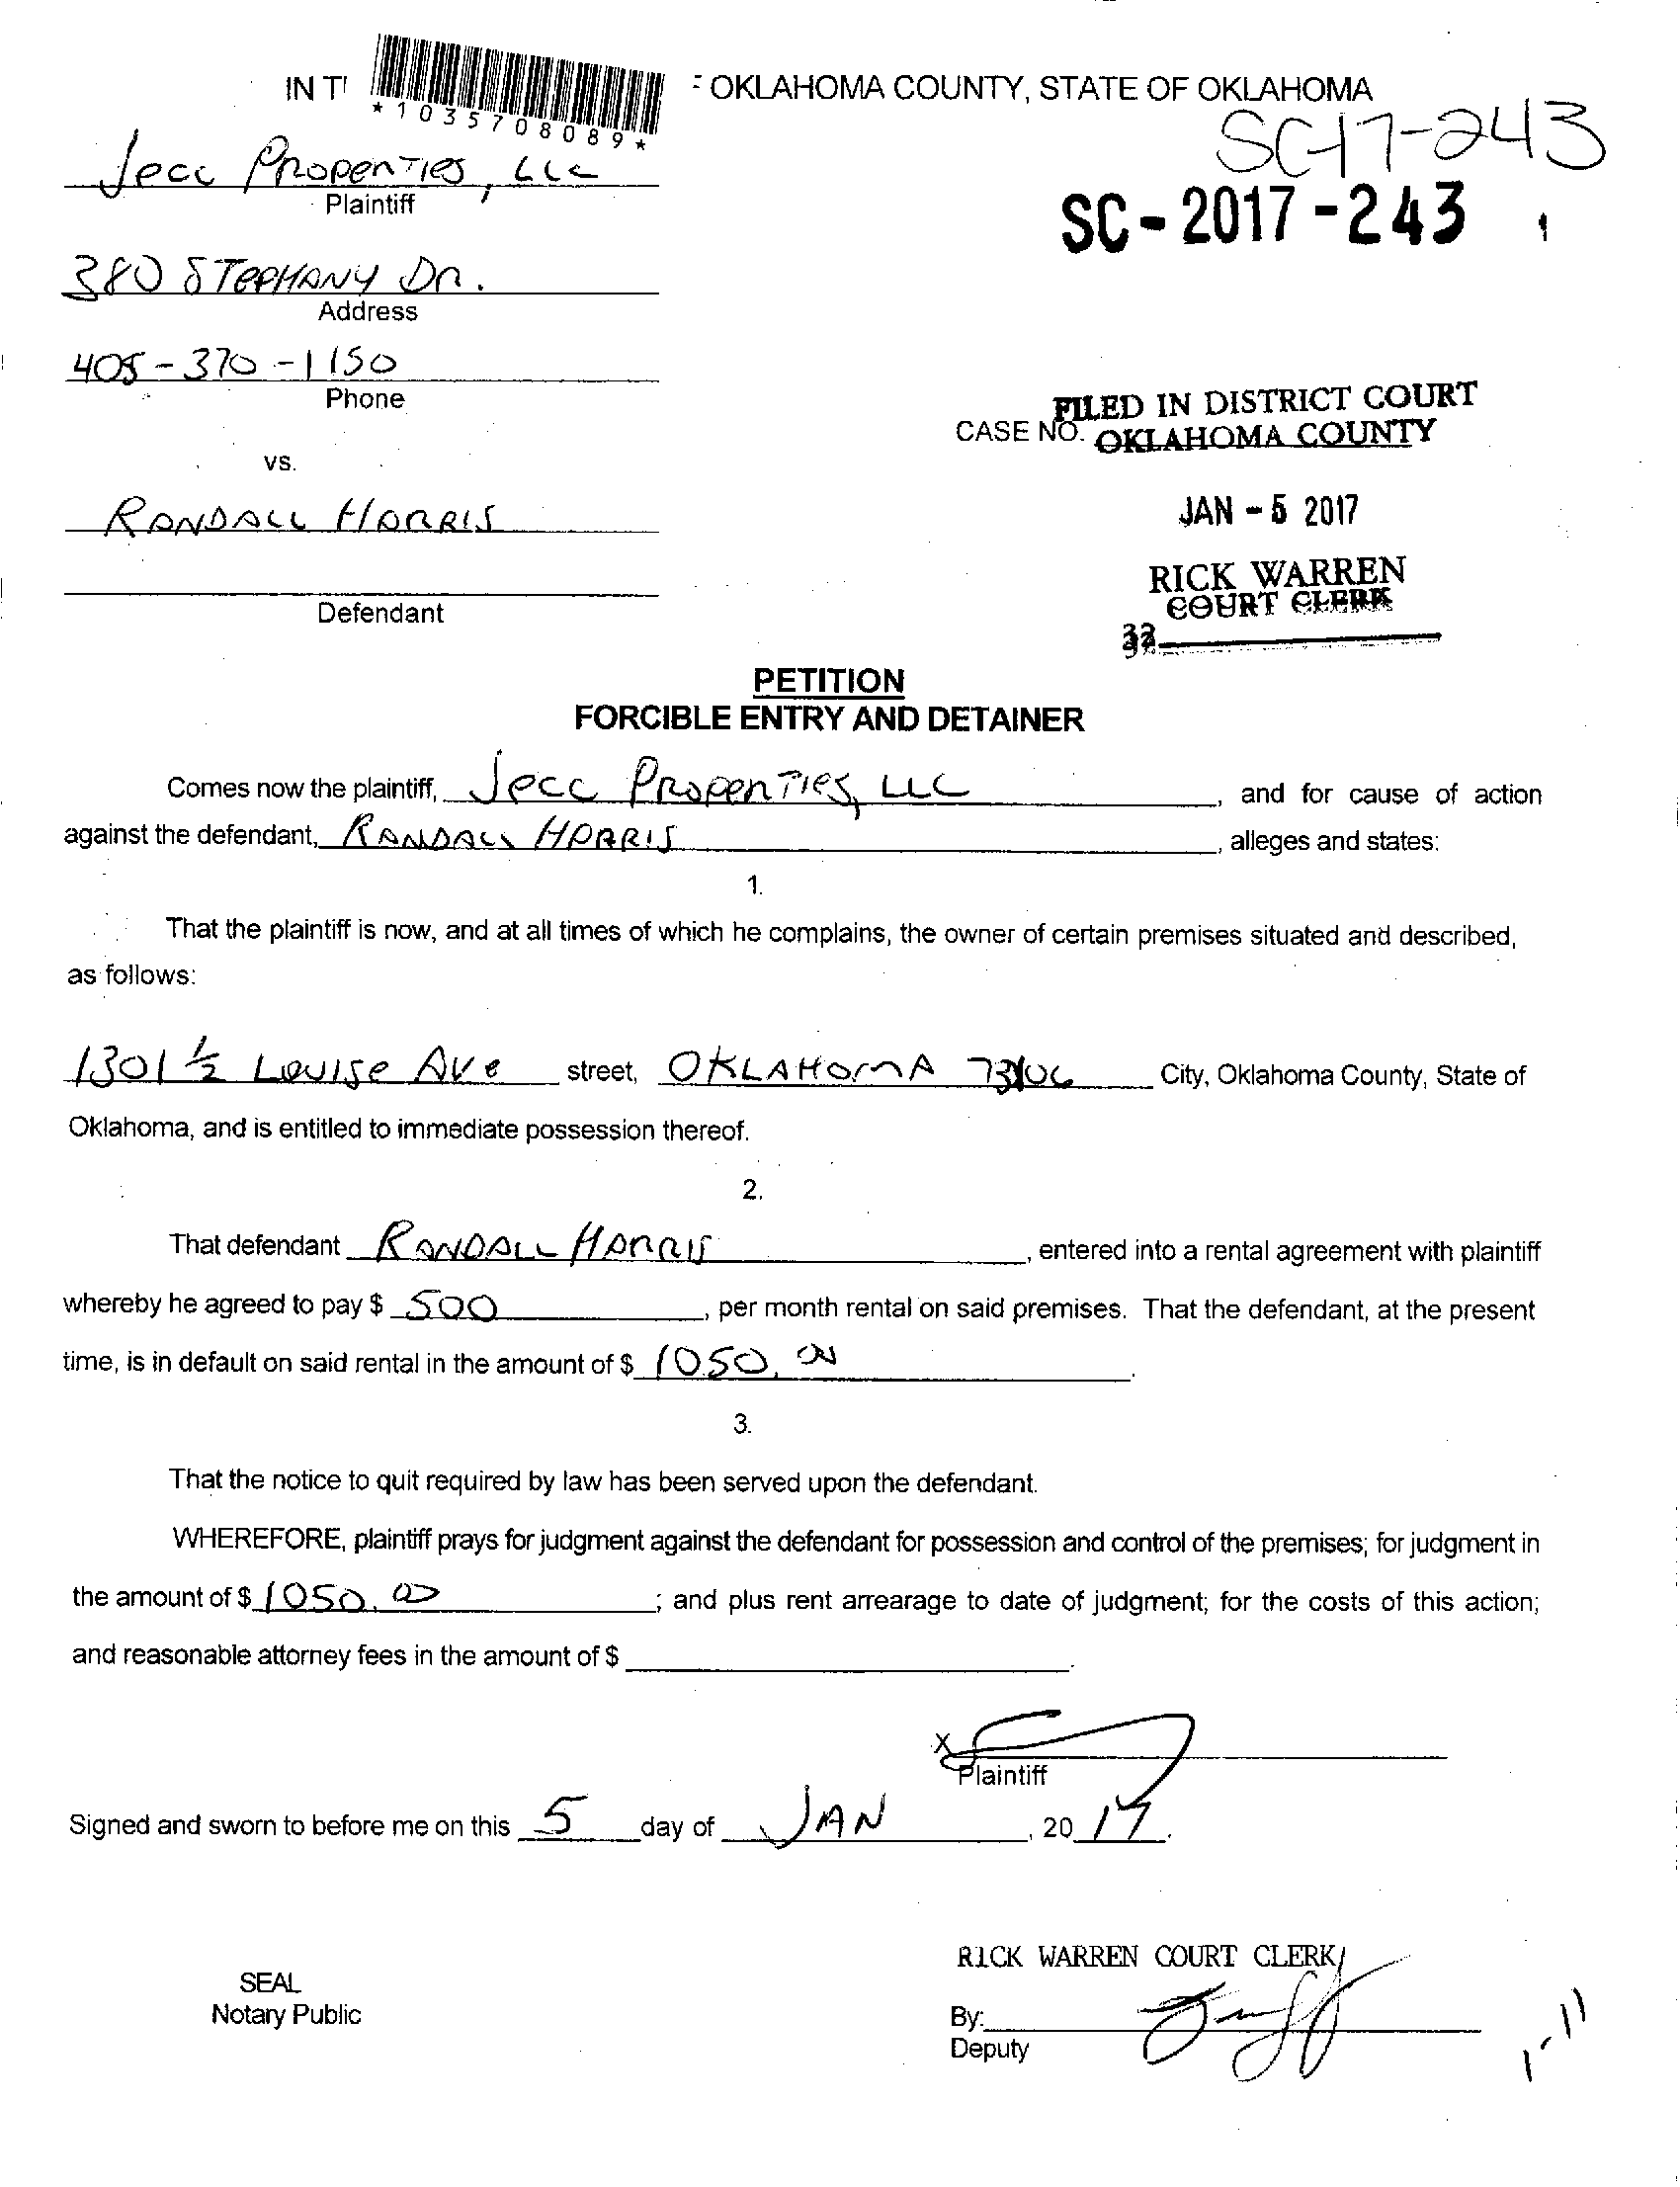 IN T
*1035708089*
OKLAHOMA COUNTY, STATE OF OKLAHOMA
SC-17-243
Jecc Properties, LLC
Plaintiff
SC-2017-243
380 STEPHANY Dr.
Address
405-370-1150
Phone
FILED IN DISTRICT COURT
CASE NO. OKLAHOMA COUNTY
vs.
RANDALL HARRIS
JAN - 5 2017
RICK WARREN
COURT CLERK
Defendant
PETITION
FORCIBLE ENTRY AND DETAINER
Comes now the plaintiff, Jecc Properties, LLC, and for cause of action
against the defendant, RANDALL HARRIS, alleges and states:
1.
That the plaintiff is now, and at all times of which he complains, the owner of certain premises situated and described,
as follows:
1301 ½ Louise Ave street, OKLAHOMA 73106 City, Oklahoma County, State of
Oklahoma, and is entitled to immediate possession thereof.
2.
That defendant RANDALL HARRIS, entered into a rental agreement with plaintiff
whereby he agreed to pay $ 500, per month rental on said premises. That the defendant, at the present
time, is in default on said rental in the amount of $ 1050.00.
3.
That the notice to quit required by law has been served upon the defendant.
WHEREFORE, plaintiff prays for judgment against the defendant for possession and control of the premises; for judgment in
the amount of $ 1050.00; and plus rent arrearage to date of judgment; for the costs of this action;
and reasonable attorney fees in the amount of $
X
Plaintiff
Signed and sworn to before me on this 5 day of JAN, 20 17.
RICK WARREN COURT CLERK
SEAL
Notary Public
By:
Deputy
1-11